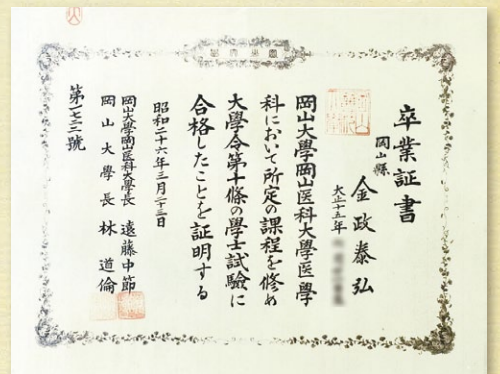 卒業証書
岡山縣
金政泰弘
大正十五年
岡山大學岡山医科大學医學
科において所定の課程を修め
大學令第十條の學士試驗に
合格したことを証明する
昭和二十六年三月二十三日
岡山大學岡山医科大學長 遠藤中節
岡山大學長 林道倫
第一七三號